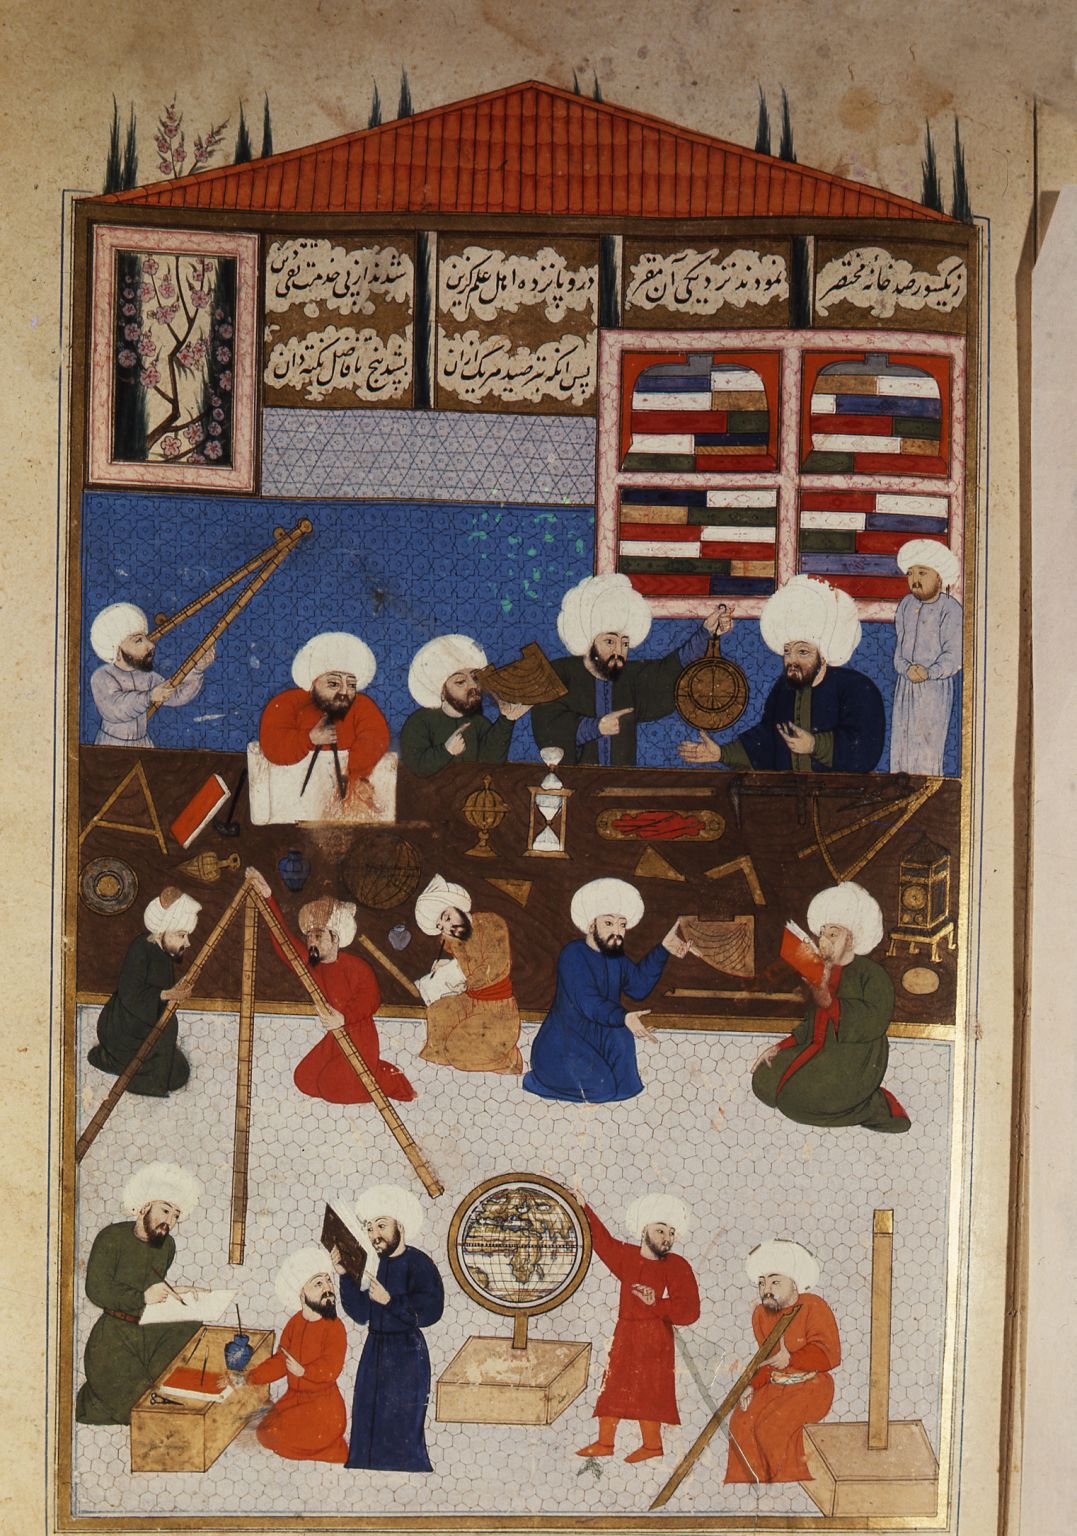 زیکسو رصدخانه مختصر
نمودند نزدیکی آن مقر
درو پانزده اهل علم گزین
شدند از پی خدمت تقی دین
پس انکه ز ترصید هر یک ازان
بشد پنج با فاضل نکته دان